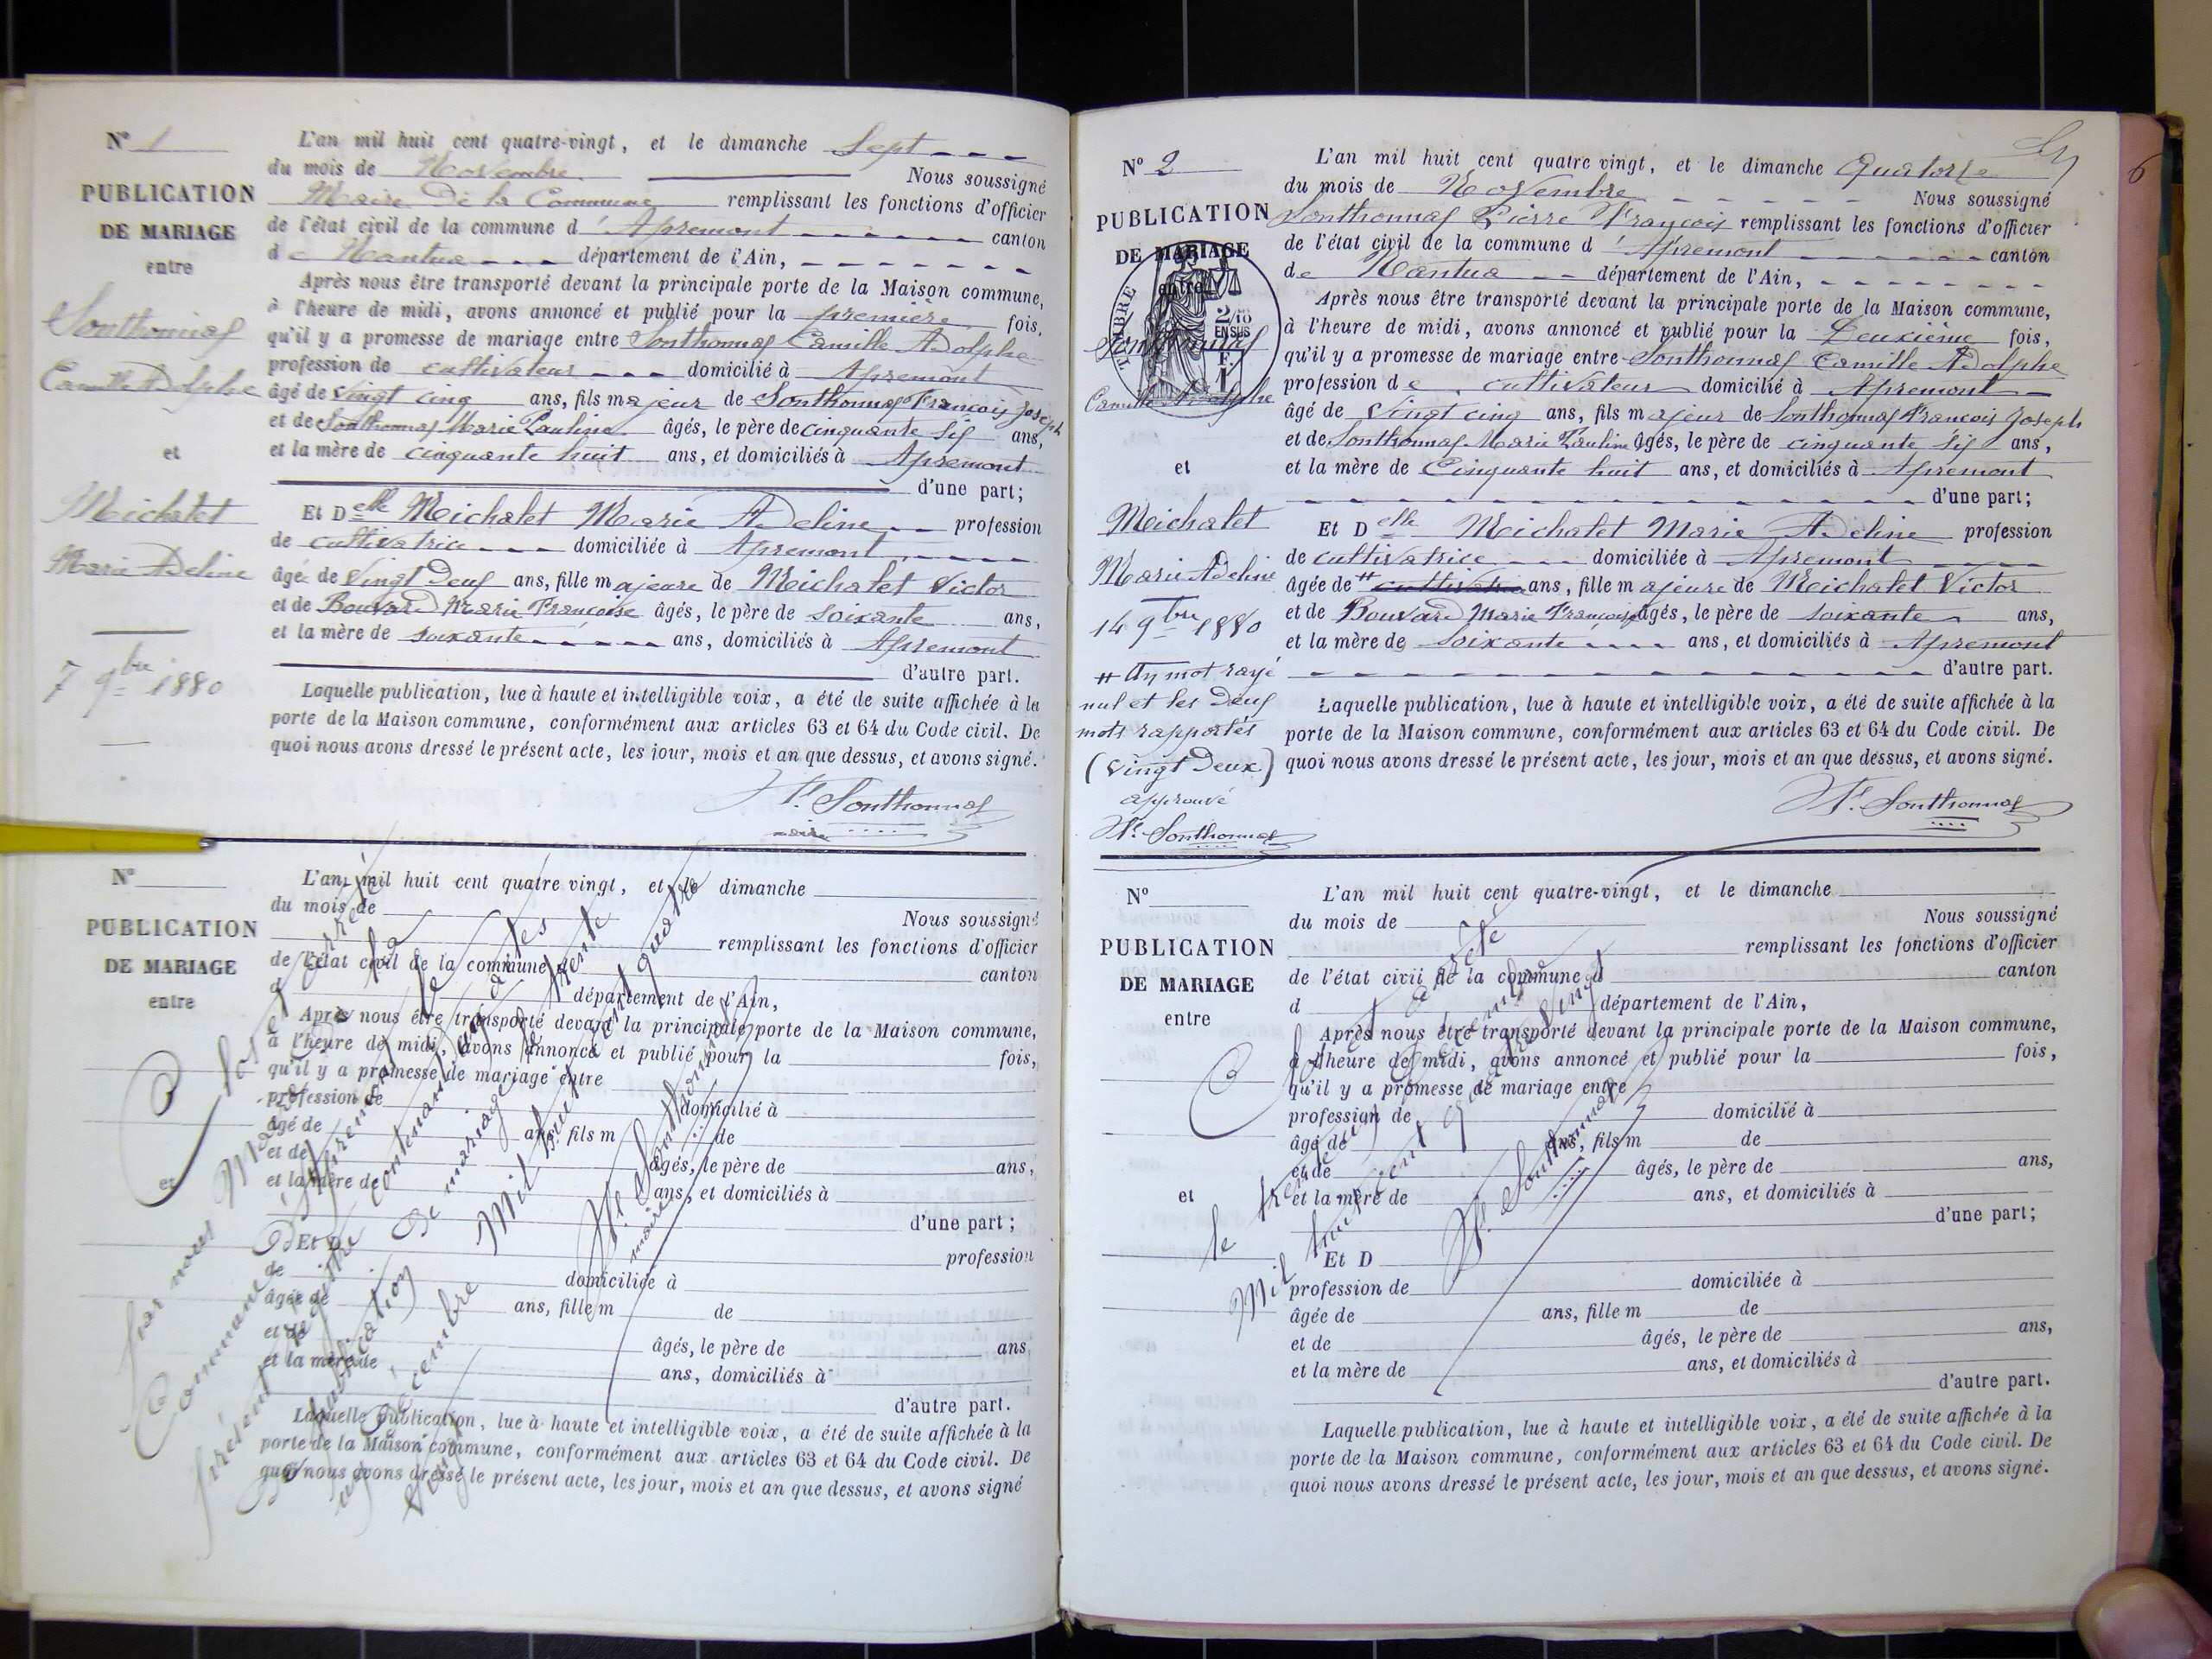 N° 1
PUBLICATION
DE MARIAGE
entre
Sonthonnas
Camille Adolphe
et
Michalet
Marie Adeline
7 9bre 1880
L'an mil huit cent quatre-vingt, et le dimanche Sept
du mois de Novembre Nous soussigné
Maire De la Commune remplissant les fonctions d'officier
de l'état civil de la commune d'Apremont canton
de Nantua département de l'Ain,
Après nous être transporté devant la principale porte de la Maison commune,
à l'heure de midi, avons annoncé et publié pour la première fois,
qu'il y a promesse de mariage entre Sonthonnas Camille Adolphe
profession de cultivateur domicilié à Apremont
âgé de Vingt cinq ans, fils majeur de Sonthonnas François Joseph
et de Sonthonnas Marie Pauline âgés, le père de cinquante six ans,
et la mère de cinquante huit ans, et domiciliés à Apremont
d'une part;
Et Delle Michalet Marie Adeline profession
de cultivatrice domiciliée à Apremont
âgée de Vingt Deux ans, fille majeure de Michalet Victor
et de Bouvard Marie Françoise âgés, le père de soixante ans,
et la mère de soixante ans, domiciliés à Apremont
d'autre part.
Laquelle publication, lue à haute et intelligible voix, a été de suite affichée à la
porte de la Maison commune, conformément aux articles 63 et 64 du Code civil. De
quoi nous avons dressé le présent acte, les jour, mois et an que dessus, et avons signé.
Sonthonnas
maire
N°
PUBLICATION
DE MARIAGE
entre
et
L'an mil huit cent quatre vingt, et le dimanche
du mois de Nous soussigné
remplissant les fonctions d'officier
de l'état civil de la commune d canton
d département de l'Ain,
Après nous être transporté devant la principale porte de la Maison commune,
à l'heure de midi, avons annoncé et publié pour la fois,
qu'il y a promesse de mariage entre
profession de domicilié à
âgé de ans, fils m de
et de âgés, le père de ans,
et la mère de ans, et domiciliés à
d'une part;
Et D profession
de domiciliée à
âgée de ans, fille m de
et de âgés, le père de ans
et la mère de ans, domiciliés à
d'autre part.
Laquelle publication, lue à haute et intelligible voix, a été de suite affichée à la
porte de la Maison commune, conformément aux articles 63 et 64 du Code civil. De
quoi nous avons dressé le présent acte, les jour, mois et an que dessus, et avons signé
Clos et arrêté
par nous Maire de la
Commune d'Apremont le
présent registre contenant deux actes
de publication De mariage le trente
un Décembre Mil huit cent quatre
vingt
Sonthonnas
maire
6
N° 2
PUBLICATION
DE MARIAGE
entre
TIMBRE
2/10
EN SUS
Sonthonnas
Camille Adolphe
et
Michalet
Marie Adeline
14 9bre 1880
# Un mot rayé
nul et les Deux
mots rapportés
(Vingt Deux)
approuvé
Sonthonnas
L'an mil huit cent quatre vingt, et le dimanche Quatorze
du mois de Novembre Nous soussigné
Sonthonnas Pierre François remplissant les fonctions d'officier
de l'état civil de la commune d'Apremont canton
de Nantua département de l'Ain,
Après nous être transporté devant la principale porte de la Maison commune,
à l'heure de midi, avons annoncé et publié pour la Deuxième fois,
qu'il y a promesse de mariage entre Sonthonnas Camille Adolphe
profession de cultivateur domicilié à Apremont
âgé de Vingt cinq ans, fils majeur de Sonthonnas François Joseph
et de Sonthonnas Marie Pauline âgés, le père de cinquante six ans,
et la mère de Cinquante huit ans, et domiciliés à Apremont
d'une part;
Et Delle Michalet Marie Adeline profession
de cultivatrice domiciliée à Apremont
âgée de # cultivatrice ans, fille majeure de Michalet Victor
et de Bouvard Marie Françoise âgés, le père de soixante ans,
et la mère de soixante ans, et domiciliés à Apremont
d'autre part.
Laquelle publication, lue à haute et intelligible voix, a été de suite affichée à la
porte de la Maison commune, conformément aux articles 63 et 64 du Code civil. De
quoi nous avons dressé le présent acte, les jour, mois et an que dessus, et avons signé.
Sonthonnas
N°
PUBLICATION
DE MARIAGE
entre
et
L'an mil huit cent quatre-vingt, et le dimanche
du mois de Nous soussigné
remplissant les fonctions d'officier
de l'état civil de la commune d canton
d département de l'Ain,
Après nous être transporté devant la principale porte de la Maison commune,
à l'heure de midi, avons annoncé et publié pour la fois,
qu'il y a promesse de mariage entre
profession de domicilié à
âgé de ans, fils m de
et de âgés, le père de ans,
et la mère de ans, et domiciliés à
d'une part;
Et D
profession de domiciliée à
âgée de ans, fille m de
et de âgés, le père de ans,
et la mère de ans, et domiciliés à
d'autre part.
Laquelle publication, lue à haute et intelligible voix, a été de suite affichée à la
porte de la Maison commune, conformément aux articles 63 et 64 du Code civil. De
quoi nous avons dressé le présent acte, les jour, mois et an que dessus, et avons signé.
Clos et arrêté
le trente un Décembre
Mil huit cent quatre vingt
Sonthonnas